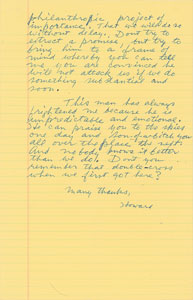 philanthropic project of
importance. That we will do so
without delay. Dont try to
extract a promise, but try to
bring him to a frame of
mind whereby you can tell
me you are convinced he
will not attack us if we do
something substantial and
soon.
This man has always
frightened me because he is
unpredictable and emotional.
He can praise you to the skies
one day and bombard you
all over the place the next.
And nobody knows it better
than we do. Dont you
remember that double-cross
when we first got here?
Many thanks,
Howard